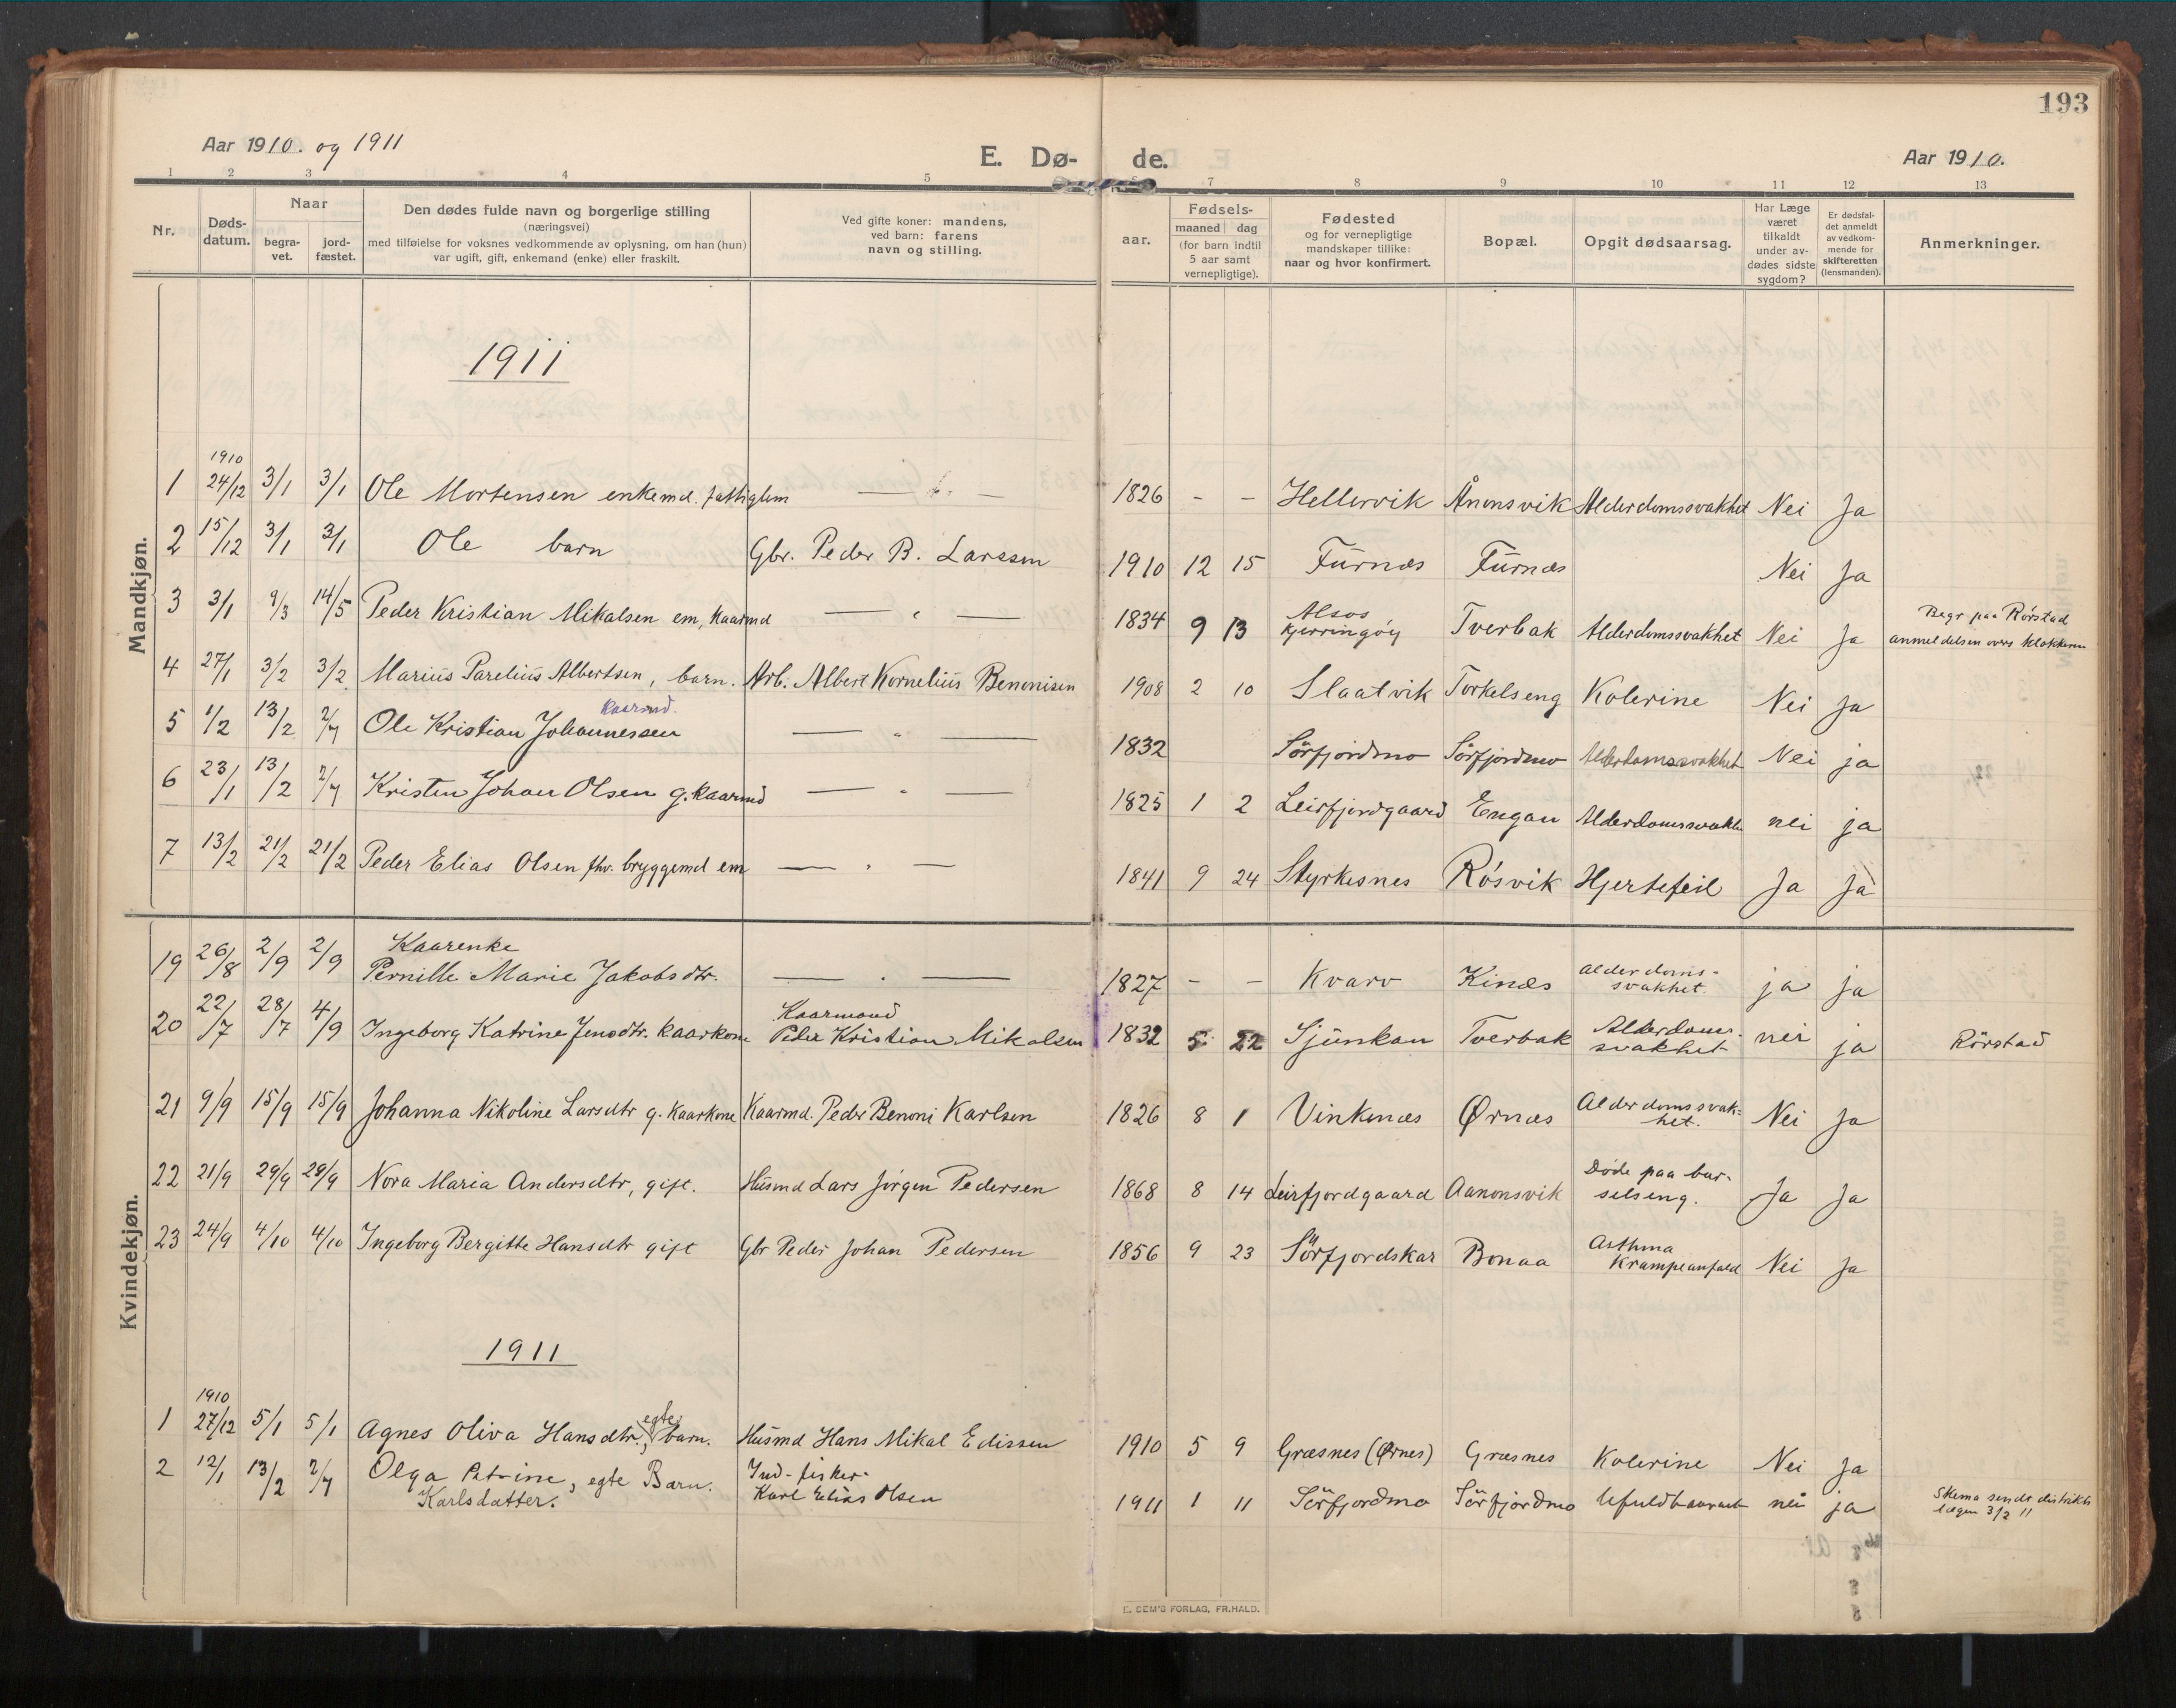 193
Aar 1910. og 1911
E. Dø- de.
Aar 1910.
1 2 3 4 5 7 8 9 10 11 12 13
Nr.
Døds-
datum.
Naar
begra-
vet.
jord-
fæstet.
Den dødes fulde navn og borgerlige stilling
(næringsvei)
med tilføielse for voksnes vedkommende av oplysning, om han (hun)
var ugift, gift, enkemand (enke) eller fraskilt.
Ved gifte koner: mandens,
ved barn: farens
navn og stilling.
aar.
Fødsels-
maaned dag
(for barn indtil
5 aar samt
vernepligtige).
Fødested
og for vernepligtige
mandskaper tillike:
naar og hvor konfirmert.
Bopæl.
Opgit dødsaarsag.
Har Læge
været
tilkaldt
under av-
dødes sidste
sygdom?
Er dødsfal-
det anmeldt
av vedkom-
mende for
skifteretten
(lensmanden).
Anmerkninger.
Mandkjøn.
1911
1910
1 24/12 3/1 3/1 Ole Mortensen enkemd. fattiglem — " — 1826 - - Hellervik Ånonsvik Alderdomssvakhet Nei Ja
2 15/12 3/1 3/1 Ole barn Gbr. Peder B. Larssen 1910 12 15 Furnæs Furnæs Nei Ja
3 3/1 9/3 14/5 Peder Kristian Mikalsen em, kaarmd — " — 1834 9 13 Alsos Kjerringøy Tverbak Alderdomssvakhet Nei Ja Begr paa Rörstad
anmeldelsen overs klokkeren
4 27/1 3/2 3/2 Marius Parelius Albertsen, barn. Arb. Albert Kornelius Benonisen 1908 2 10 Slaatvik Torkelseng Kolerine Nei Ja
Kaarmd.
5 1/2 13/2 2/7 Ole Kristian Johannessen — " — 1832 Sörfjordmo Sörfjordmo Alderdomssvakhet Nei ja
6 23/1 13/2 2/7 Kristen Johan Olsen g. kaarmd — " — 1825 1 2 Leirfjordgaard Engan Alderdomssvakh nei ja
7 13/2 21/2 21/2 Peder Elias Olsen fhv. bryggemd em — " — 1841 9 24 Styrkesnes Røsvik Hjertefeil Ja Ja
Kvindekjøn.
Kaarenke
19 26/8 2/9 2/9 Pernille Marie Jakobsdtr. — " — 1827 - - Kvarv Kinæs Alderdoms-
svakhet. ja ja
Kaarmand
20 22/7 28/7 4/9 Ingeborg Katrine Jensdtr. kaarkone Peder Kristian Mikalsen 1832 5 22 Sjunkan Tverbak Alderdoms-
svakhet nei ja Rörstad
21 9/9 15/9 15/9 Johanna Nikoline Larsdtr g. kaarkone Kaarmd. Peder Benoni Karlsen 1826 8 1 Vinkenæs Ørnæs Alderdomssvak-
het. Nei Ja
22 21/9 29/9 29/9 Nora Maria Andersdtr, gift. Husmd Lars Jörgen Pedersen 1868 8 14 Leirfjordgaard Aanonsvik Döde paa bar-
selseng. Ja Ja
23 24/9 4/10 4/10 Ingeborg Bergitte Hansdtr gift Gbr Peder Johan Pedersen 1856 9 23 Sörfjordskar Bonaa Asthma
Krampeanfald Nei Ja
1911
1910
1 27/12 5/1 5/1 Agnes Oliva Hansdtr., egte barn. Husmd Hans Mikal Edissen 1910 5 9 Græsnes (Ørnes) Græsnes Kolerine Nei Ja
2 12/1 13/2 2/7 Olga Petrine, egte Barn.
Karlsdatter.
Ind-fisker
Karl Elias Olsen 1911 1 11 Sörfjordmo Sörfjordmo Ufuldbaaret nei ja Skema sendt distrikts
lægen 3/2 11
E. SEM'S FORLAG, FR.HALD.